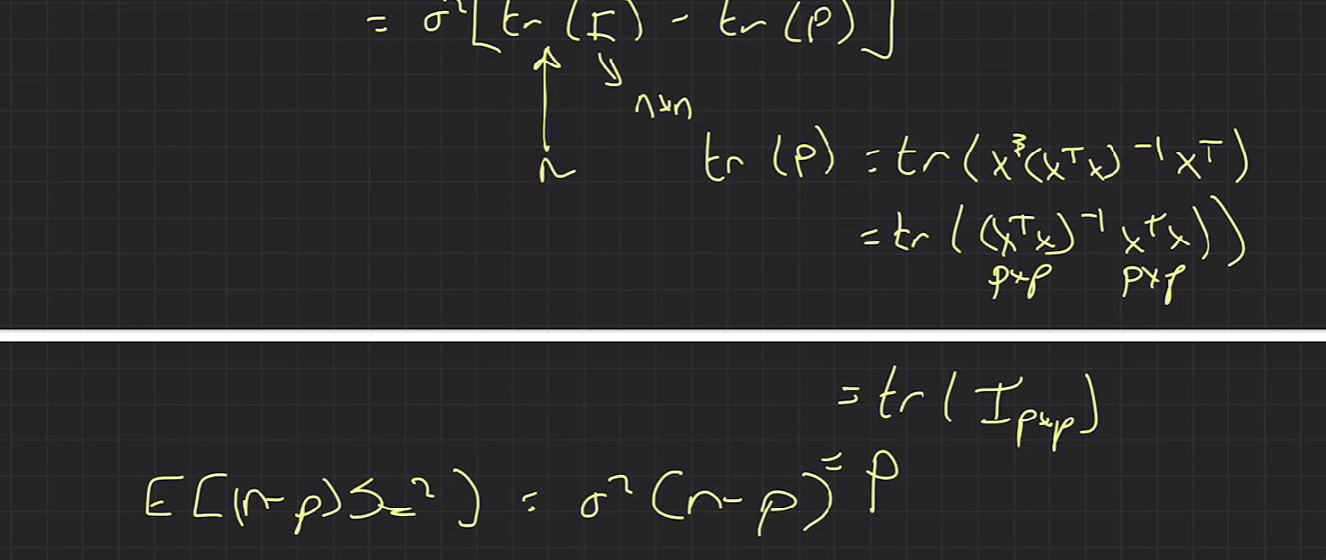 = σ²[tr (I) - tr (P)]
n×n
n
tr (P) = tr(X(XᵀX)⁻¹Xᵀ)
= tr ((XᵀX)⁻¹ XᵀX))
p×p p×p
= tr (I p×p)
= p
E[(n-p)S²) = σ²(n-p)